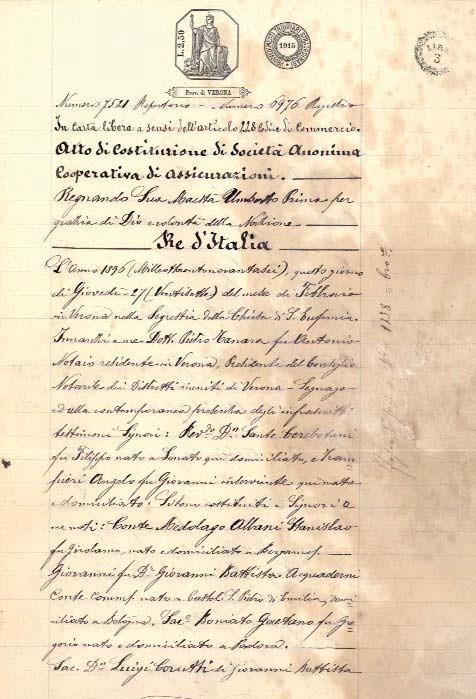 L. 2,50
1915
LIRE
3
Prov. di VERONA
Numero 7521 Repertorio - Numero 6976 Registro
In Carta libera a sensi dell'articolo 228 Codice di Commercio.
Atto di Costituzione di Società Anonima
Cooperativa di Assicurazioni.
Regnando Sua Maestà Umberto Primo per
grazia di Dio e volontà della Nazione
Re d'Italia
L'Anno 1896 (Milleottocentonovantasei), questo giorno
di Giovedì - 27 (Ventisette) del mese di Febbraio
in Verona nella Segrestia della Chiesa di S. Eufemia.
Innanzi a me Dott. Pietro Canara fu Antonio
Notaio residente in Verona, Presidente del Consiglio
Notarile dei Distretti riuniti di Verona - Legnago
ed alla contemporanea presenza degli infrascritti
testimoni Signori: Rev.do Dn Sante Cerebotani
fu Filippo nato a Lonato qui domiciliato, e
Angelo fu Giovanni qui nato
e domiciliato. Si sono costituiti i Signori a
me noti: Conte Medolago Albani Stanislao
fu Girolamo, nato e domiciliato a Bergamo.
Giovanni fu Dr. Giovanni Battista Acquaderni
Conte Comm. nato a Castel S. Pietro di Emilia, domi=
ciliato a Bologna. Sac.e Roncato Gaetano fu Gre=
gorio nato e domiciliato a Padova.
Sac. Dn Luigi Cerutti di Giovanni Battista